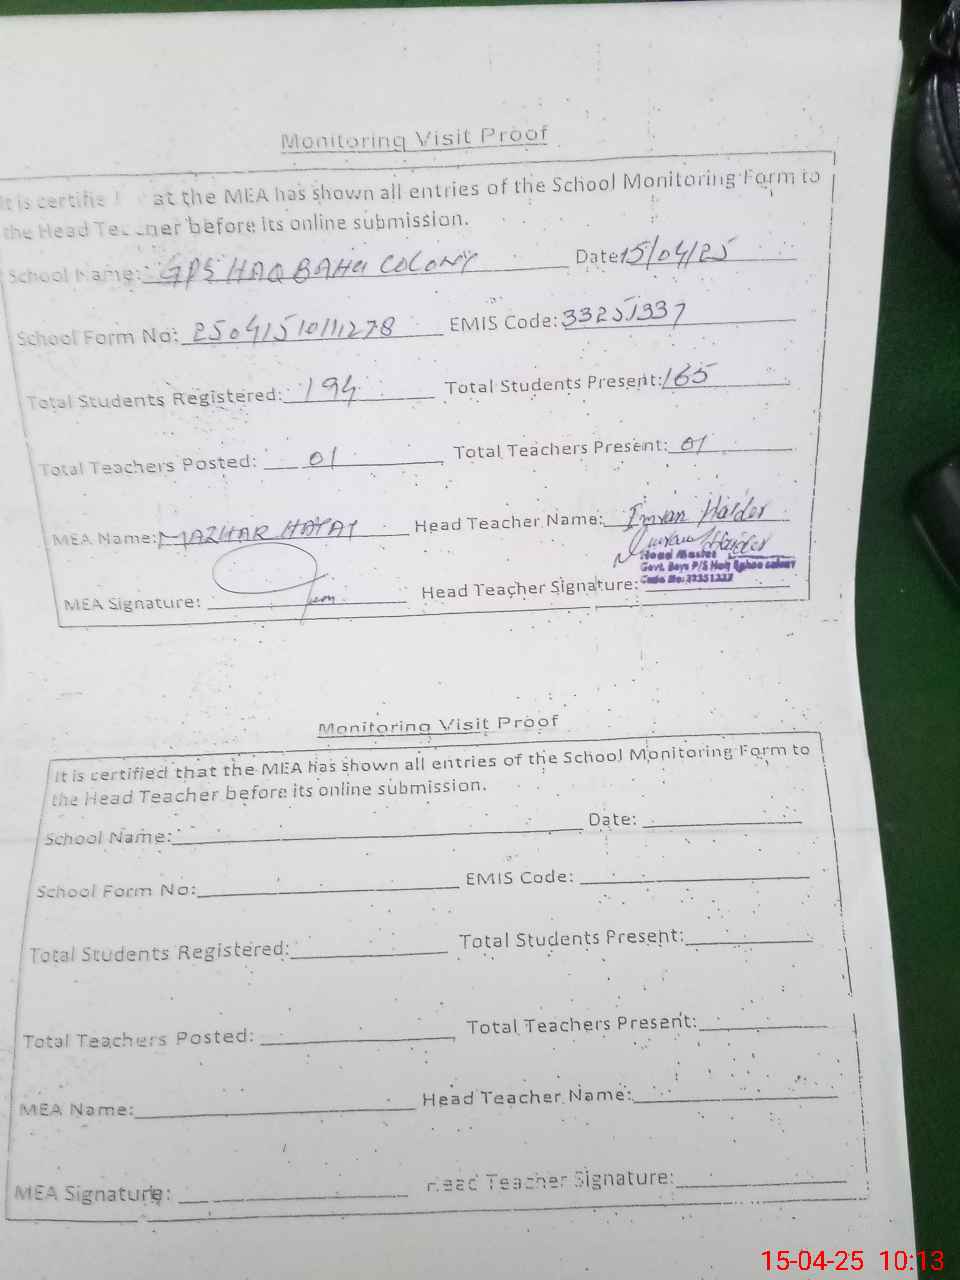 Monitoring Visit Proof
It is certified that the MEA has shown all entries of the School Monitoring Form to
the Head Teacher before its online submission.
School Name: GPS HAQ BAHU COLONY Date: 15/04/25
School Form No: 2504151011278 EMIS Code: 33251337
Total Students Registered: 194 Total Students Present: 165
Total Teachers Posted: 01 Total Teachers Present: 01
MEA Name: MAZHAR HAYAT Head Teacher Name: Imran Haider
Imran Haider
Head Master
Govt. Boys P/S Haq Bahoo colony
MEA Signature: Head Teacher Signature: Code No:
Monitoring Visit Proof
It is certified that the MEA has shown all entries of the School Monitoring Form to
the Head Teacher before its online submission.
School Name: Date:
School Form No: EMIS Code:
Total Students Registered: Total Students Present:
Total Teachers Posted: Total Teachers Present:
MEA Name: Head Teacher Name:
MEA Signature: Head Teacher Signature:
15-04-25 10:13